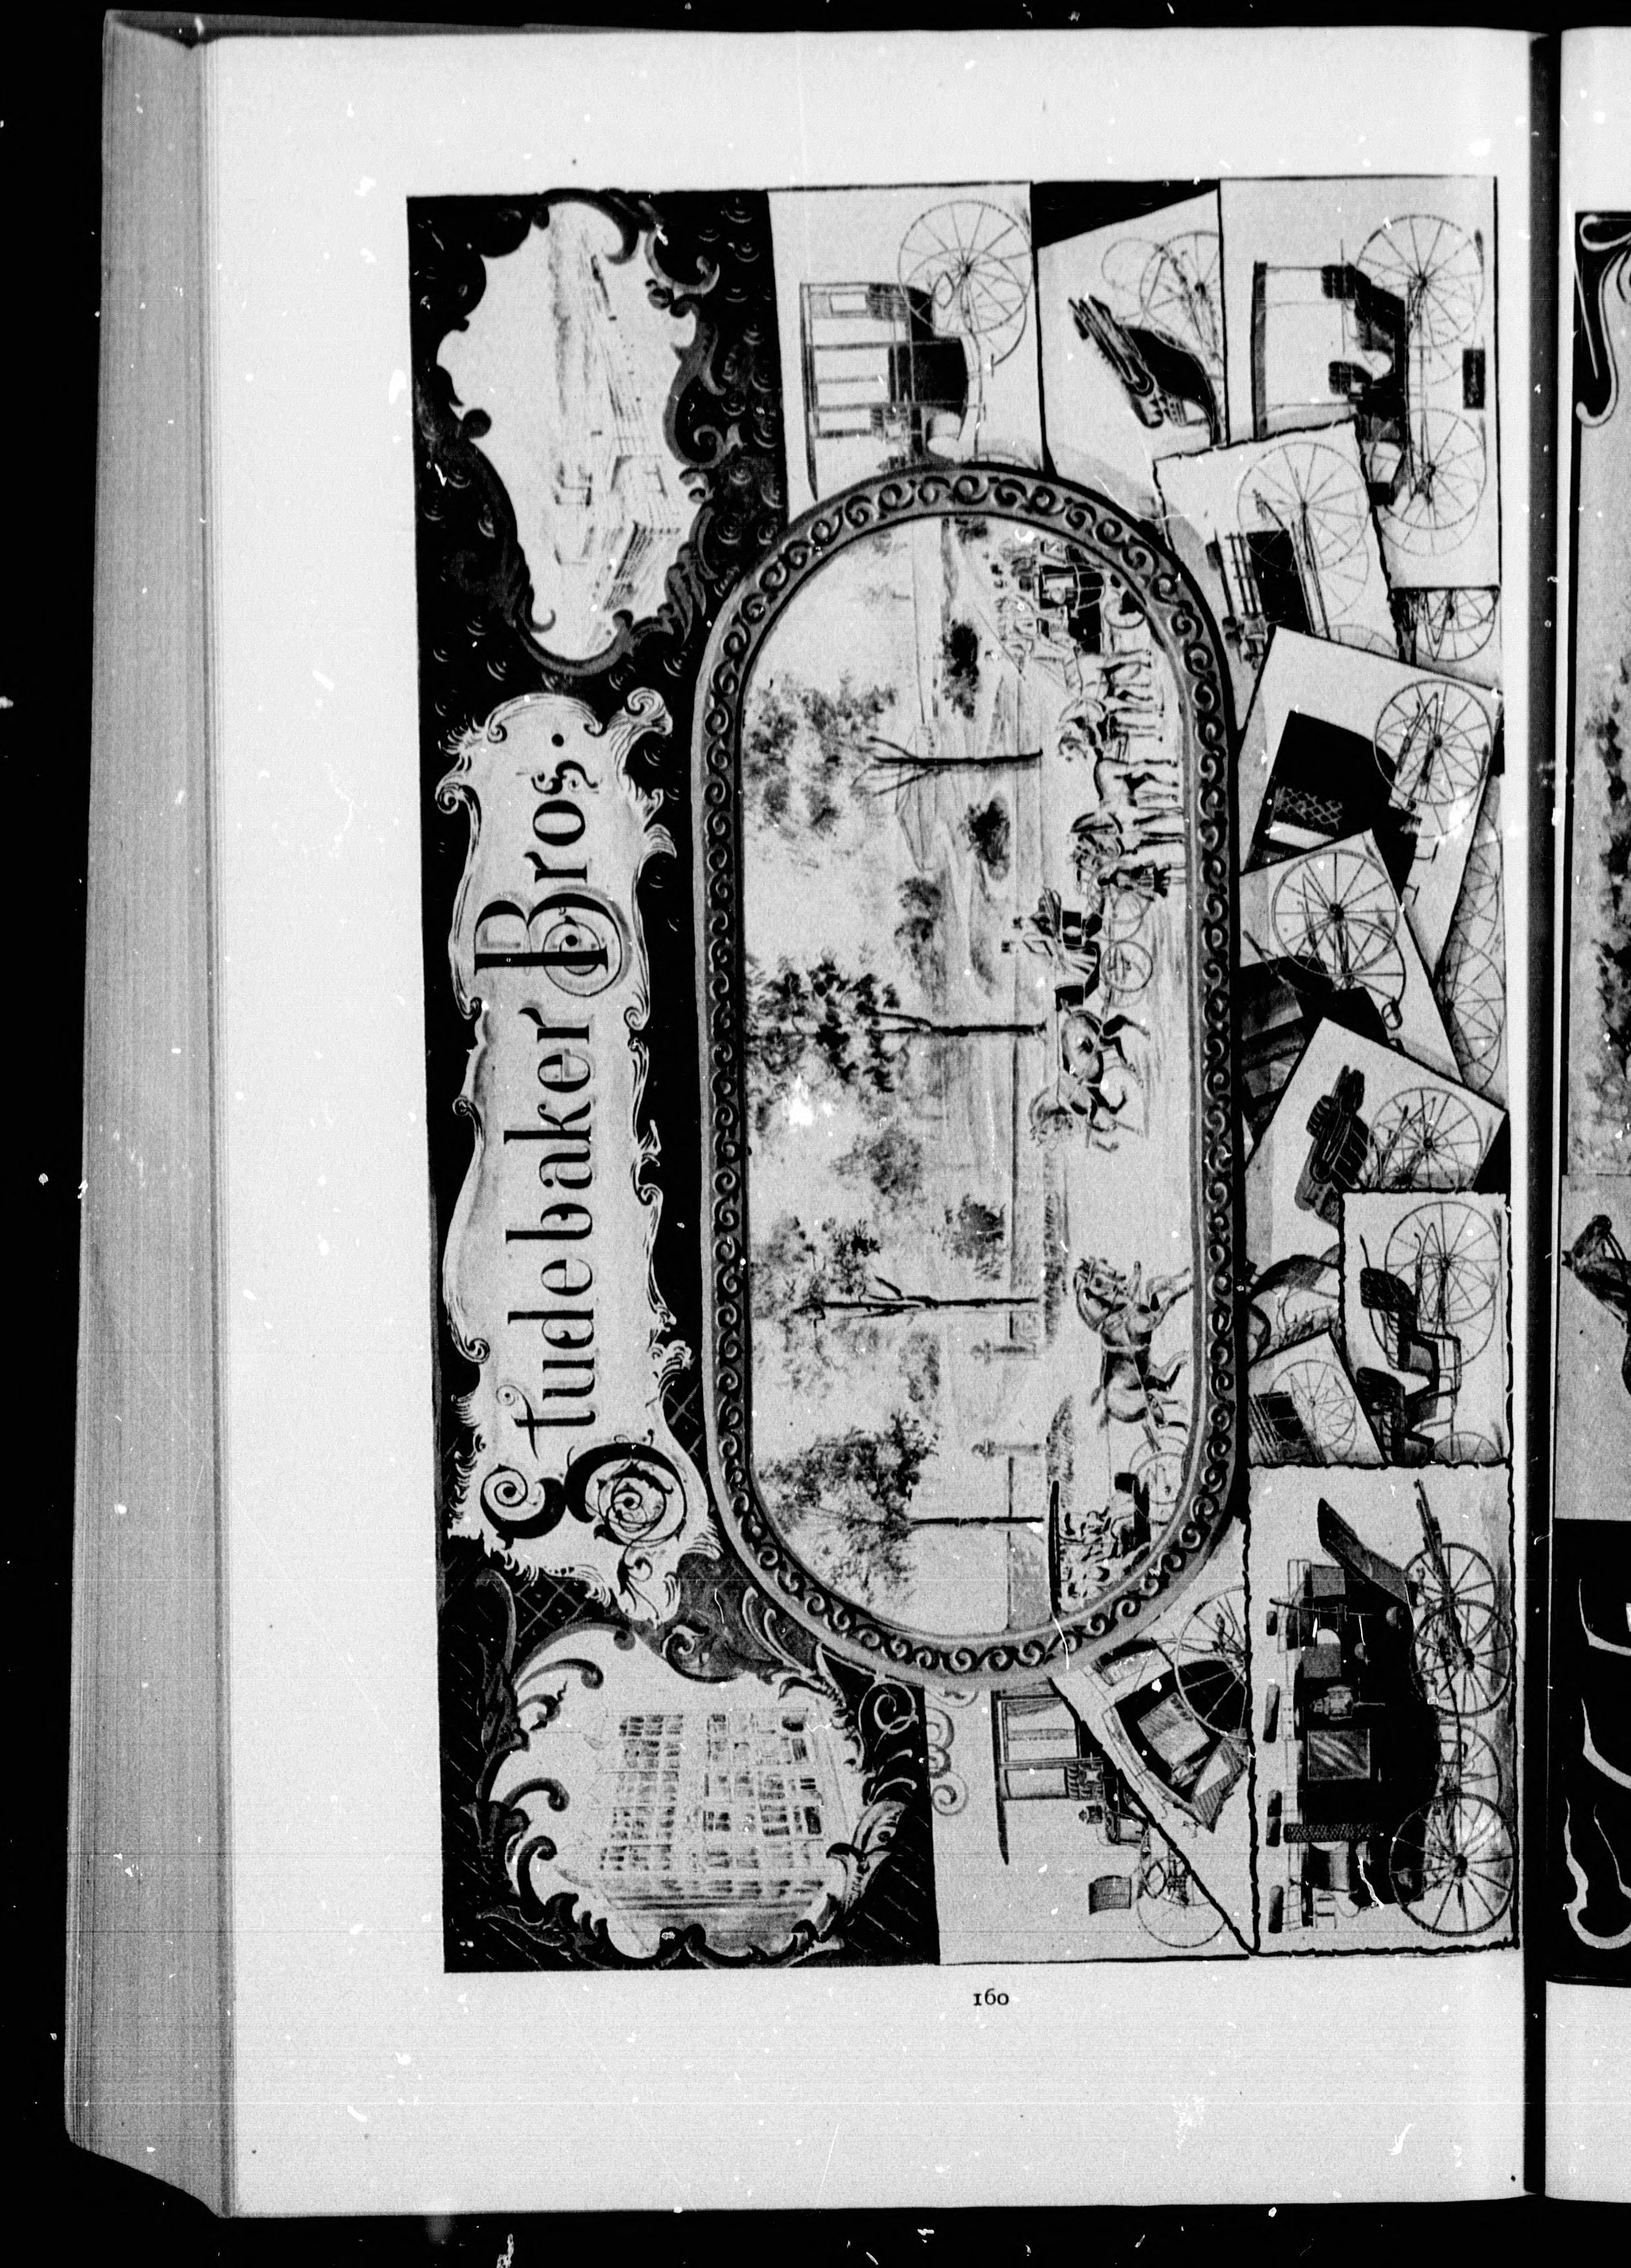 Studebaker Bros.
160